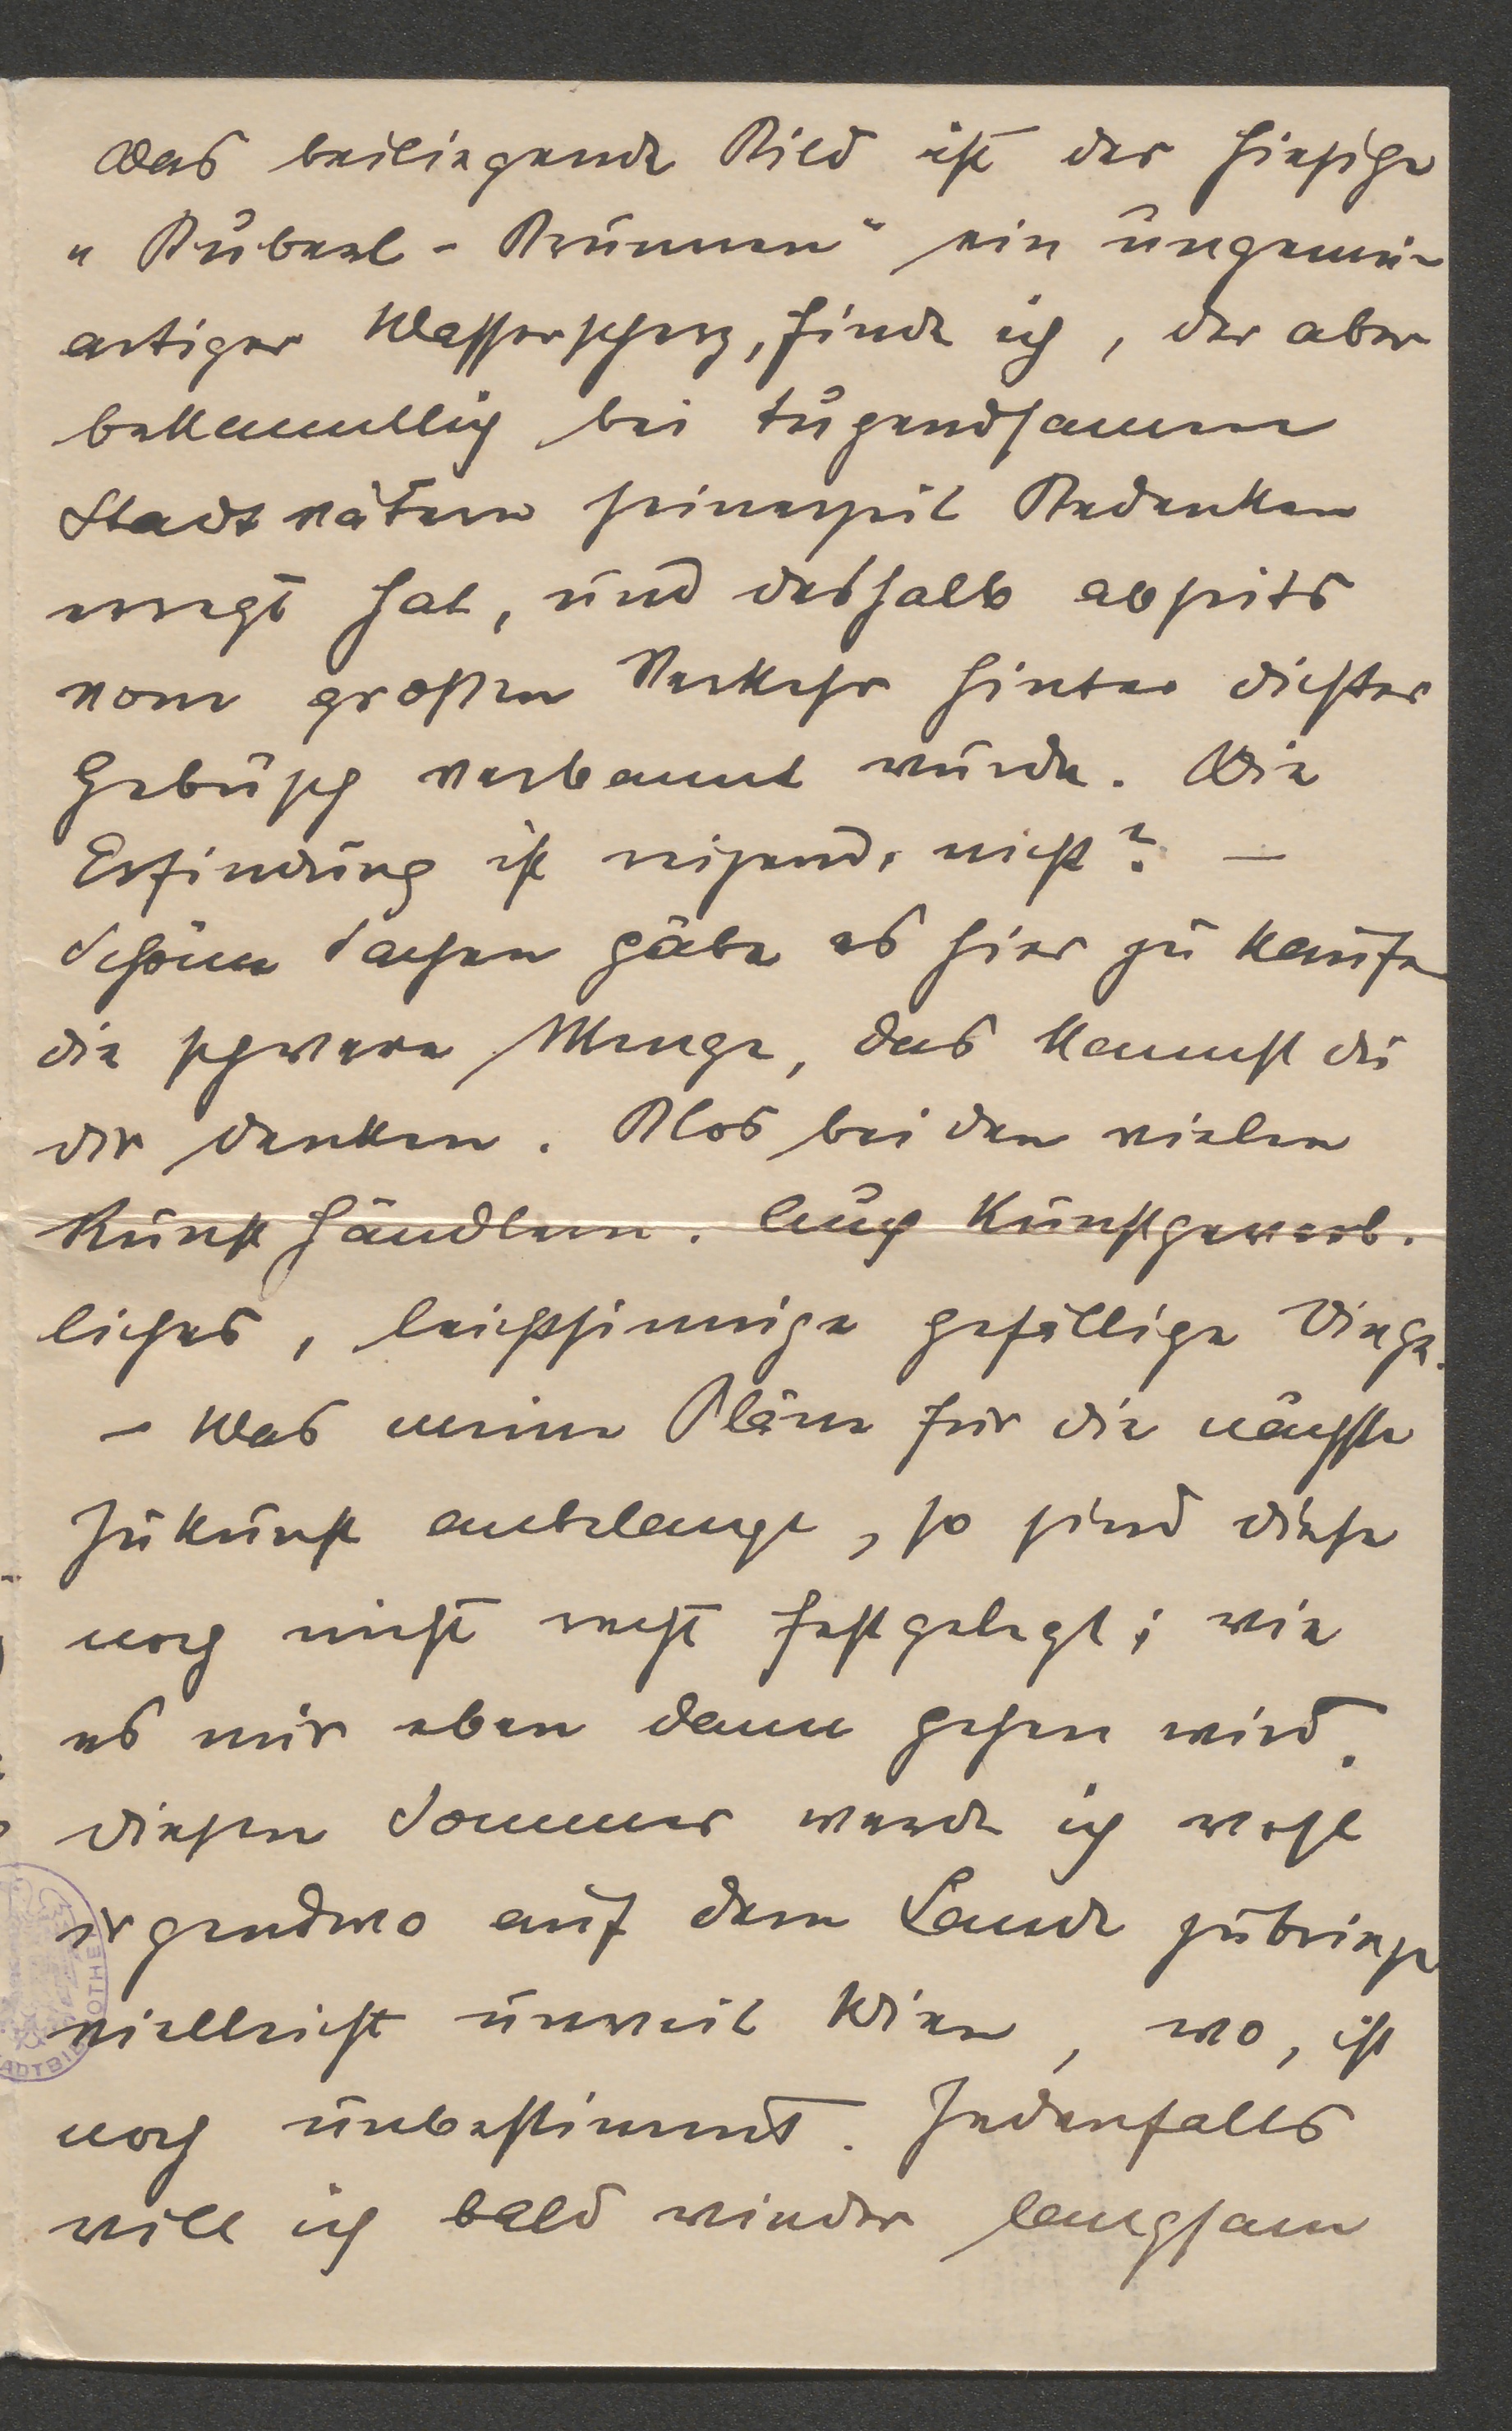 Das beiliegende Bild ist der hiesige
„Buberl-Brunnen" ein ungemein
artiger Wasserscherz, finde ich, der aber
bekanntlich bei tugendsamen
Stadtvätern seinerzeit Bedenken
erregt hat, und deshalb abseits
vom großen Verkehr hinter dichter
Gebüsch verbannt wurde. Die
Erfindung ist reizend, nicht? –
Schöne Sachen gäbe es hier zu kaufen
die schwere Menge, das kannst du
dir denken. Blos bei den vielen
Kunsthändlern. Auch Kunstgewerb.
liches, leichtsinnige gefällige Dinge.
– Was meine Pläne für die nächste
Zukunft anbelangt, so sind diese
noch nicht recht festgelegt; wie
es mir eben dann gehen wird.
Diesen Sommer werde ich wohl
irgendwo auf dem Lande zubringen
vielleicht unweit Wien, wo, ist
noch unbestimmt. Jedenfalls
will ich bald wieder langsam